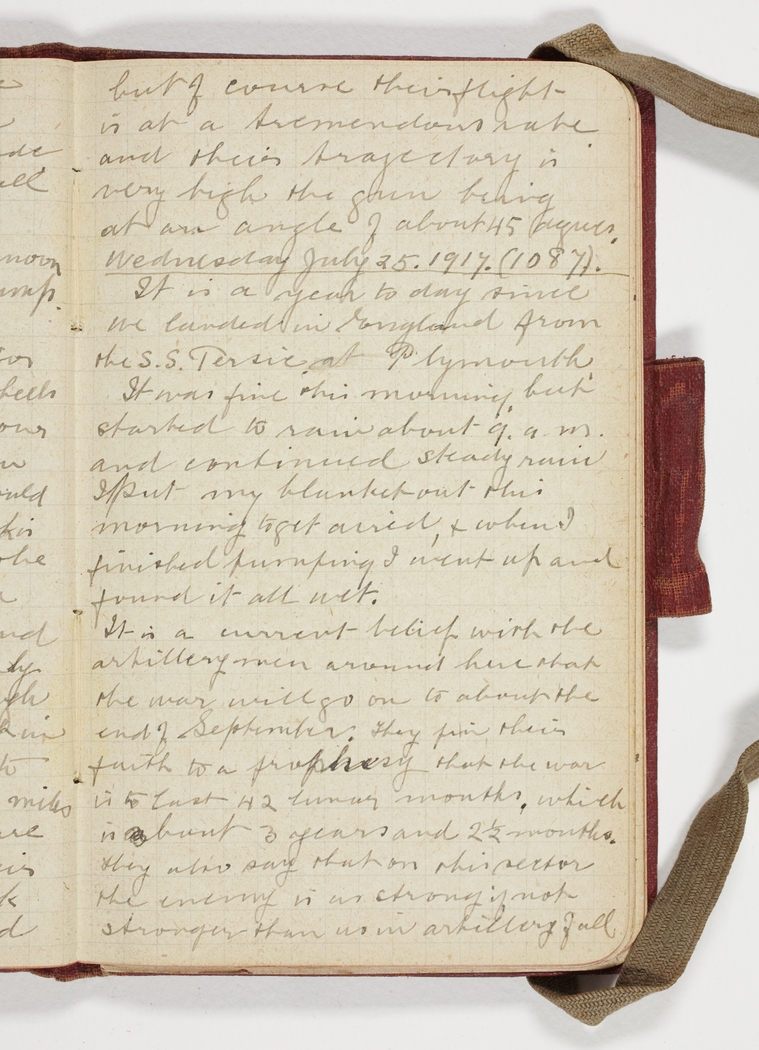 de
all
noon
but of course their flight
is at a tremendous rate
and their trajectory is
very high the gun being
at an angle of about 45 degrees.
Wednesday July 25. 1917. (1087).
It is a year to day since
we landed in England from
the S.S. Persic at Plymouth
It was fine this morning but
started to rain about 9. a.m.
and continued steady rain
I put my blanket out this
morning to get aired, & when I
finished pumping I went up and
found it all wet.
It is a current belief with the
artillery men around here that
the war will go on to about the
end of September. They pin their
faith to a prophesy that the war
is to last 42 lunar months, which
is about 3 years and 2½ months.
they also say that on this sector
the enemy is as strong if not
stronger than us in artillery of all